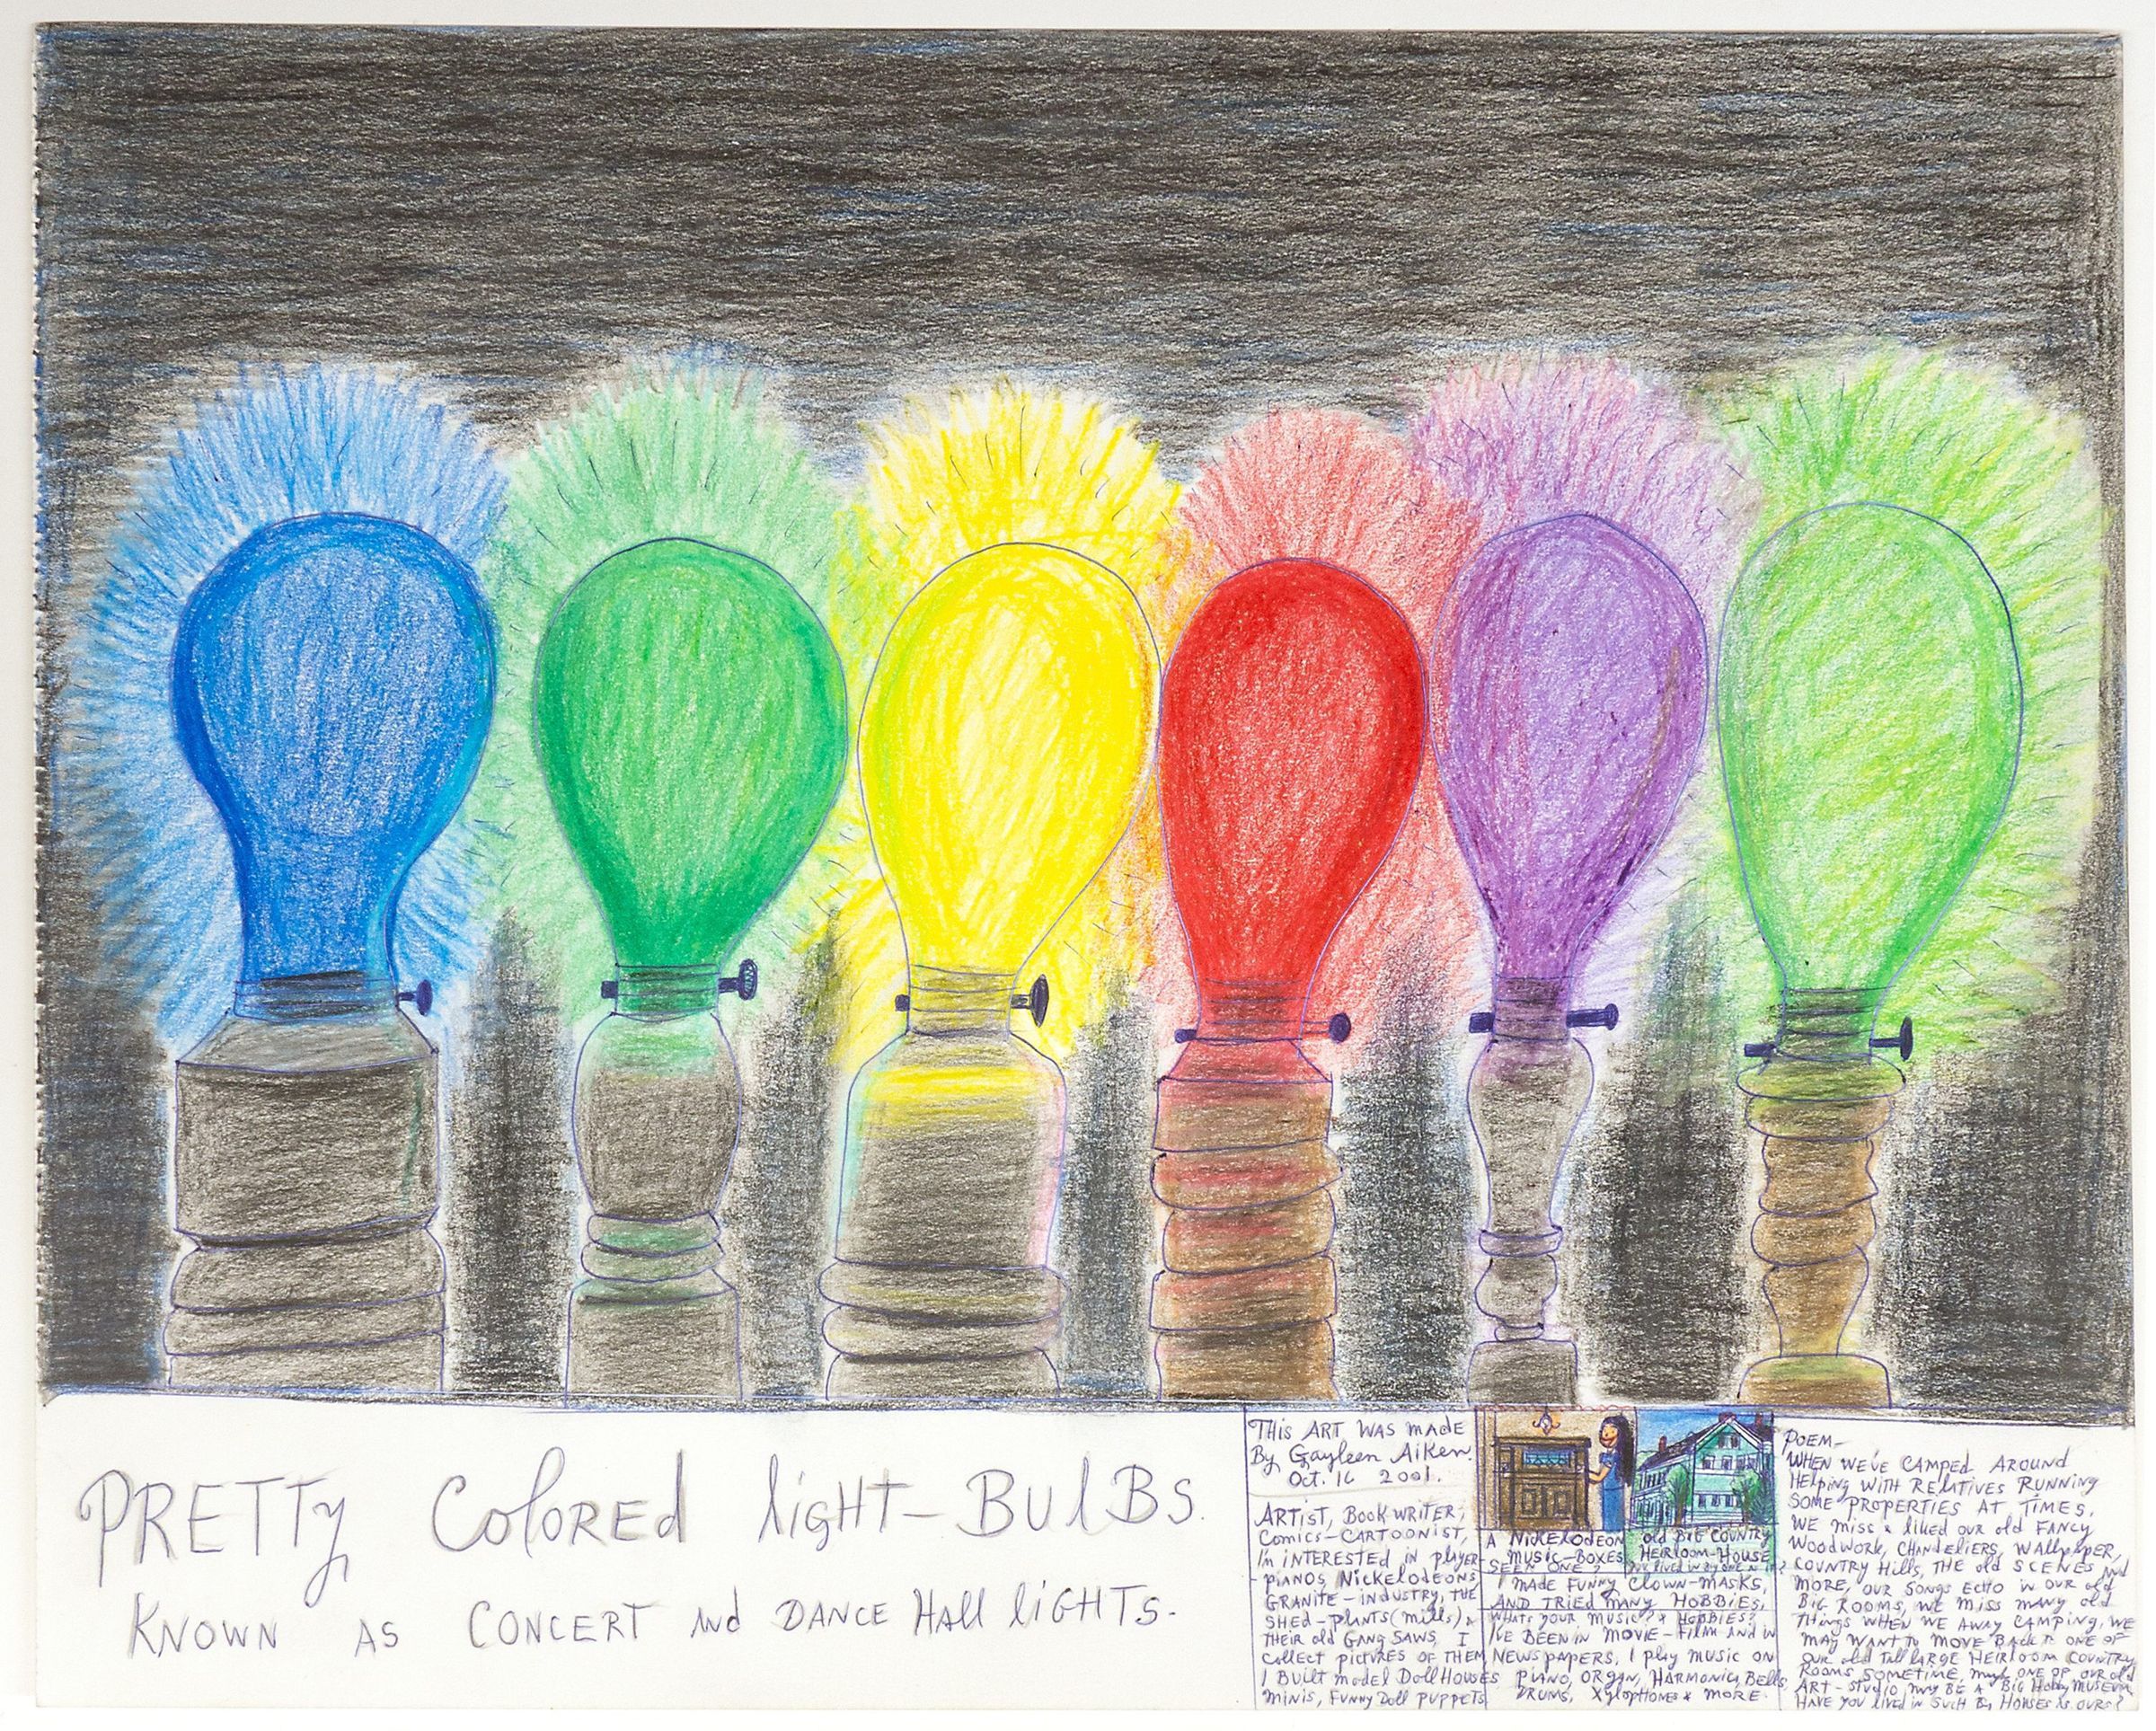 PRETTy Colored light-Bulbs.
KNOWN AS CONCERT And DANCE Hall lights.
THis ART WAS MADE
By Gayleen Aiken.
Oct. 16 2001.
ARTIST, Book-WRITER,
Comics-CARTOONIST,
I'm INTERESTED in player-
PIANOS, Nickelodeons,
GRANITE-industry, THE
SHED-PLANTS (mills),
THeir old GANG SAWS, I
Collect pictures OF THEM,
I Built model DollHouses,
minis, Funny Doll puppets.
A Nickelodeon
music-Boxes
SEEN ONE?
old BiG COUNTRY
HEIRLOOM-HOUSE
I made Funny Clown-masks,
AND TRIED MANY HOBBIES,
Whats your music? & HOBBIES?
I'VE BEEN iN MOVIE-Film And in
NEWSPAPERS, I play music ON
PIANO, ORGAN, HARMONICA, Bells,
DRUMS, XylopHones & MORE.
POEM-
WHEN WE'VE CAMPED AROUND
HElping WITH RElATIVES RUNNING
SOME PROPERTIES AT TIMES,
WE miss & liked our old FANCY
WOODWORK, CHANdeliers, WAllpApER,
COUNTRY Hills, THE old SCENES And
MORE, OUR SONGS ECHO in our old
BiG ROOMS, WE miss many old
THings WHEN WE AWAY CAMPING, WE
MAY WANT TO MOVE BACK To ONE OF
our old Tall LARGE HEIRLOOM COUNTRY
ROOMS SOMETIME, ONE OF our old
ART-STudio may BE A BiG Hobby museum,
HAVE you lived in SUCH Big HOUSES AS OURS?